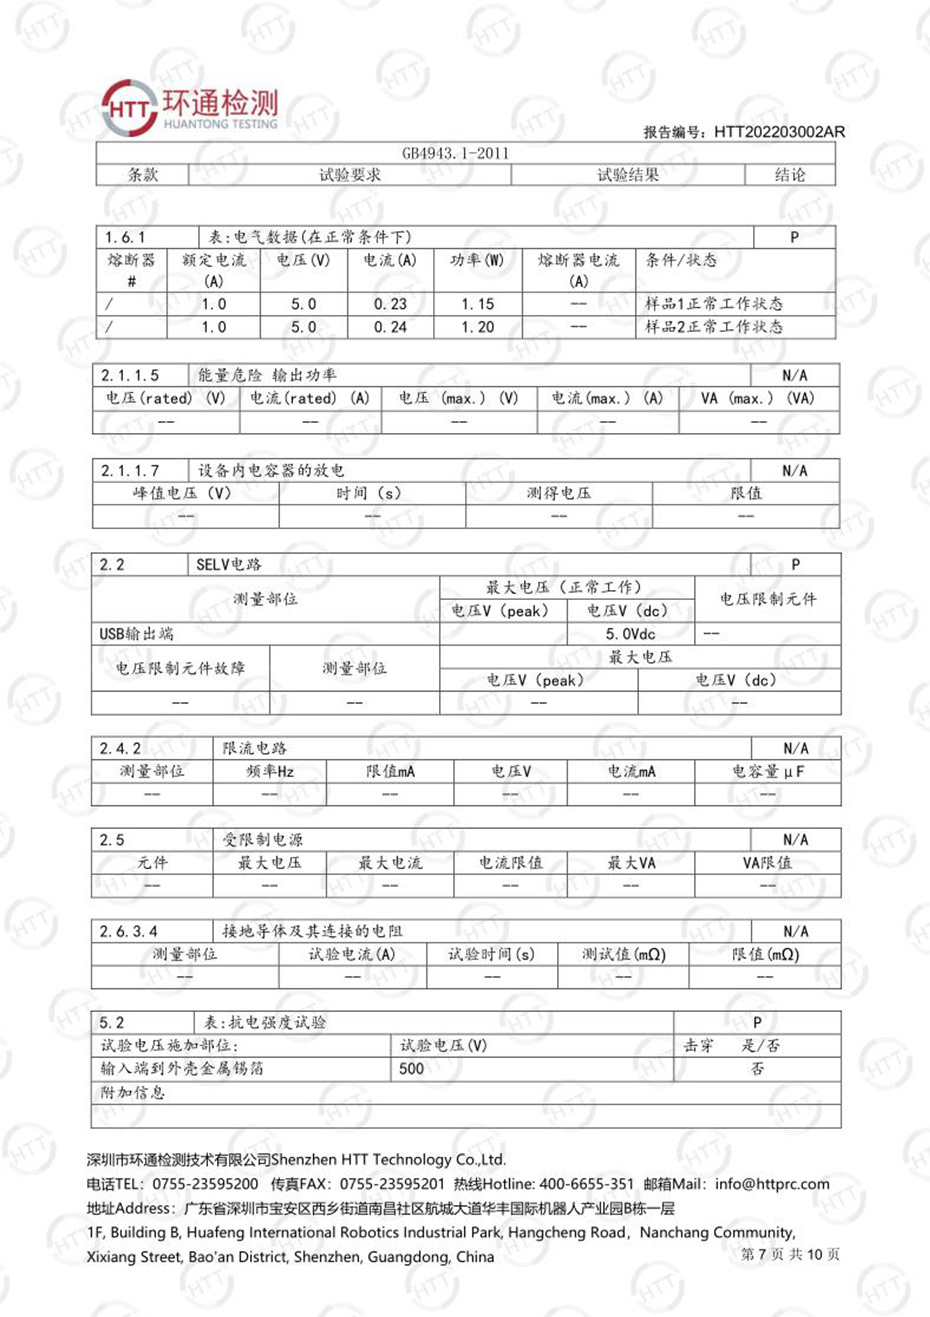 HTT 环通检测
HUANTONG TESTING
报告编号：HTT202203002AR
GB4943.1-2011
条款 试验要求 试验结果 结论
1.6.1 表:电气数据(在正常条件下) P
熔断器# 额定电流(A) 电压(V) 电流(A) 功率(W) 熔断器电流(A) 条件/状态
/ 1.0 5.0 0.23 1.15 -- 样品1正常工作状态
/ 1.0 5.0 0.24 1.20 -- 样品2正常工作状态
2.1.1.5 能量危险 输出功率 N/A
电压(rated) (V) 电流(rated) (A) 电压 (max.) (V) 电流(max.) (A) VA (max.) (VA)
-- -- -- -- --
2.1.1.7 设备内电容器的放电 N/A
峰值电压 (V) 时间 (s) 测得电压 限值
-- -- -- --
2.2 SELV电路 P
测量部位 最大电压 (正常工作) 电压限制元件
电压V (peak) 电压V (dc)
USB输出端 5.0Vdc --
电压限制元件故障 测量部位 最大电压
电压V (peak) 电压V (dc)
-- -- -- --
2.4.2 限流电路 N/A
测量部位 频率Hz 限值mA 电压V 电流mA 电容量μF
-- -- -- -- -- --
2.5 受限制电源 N/A
元件 最大电压 最大电流 电流限值 最大VA VA限值
-- -- -- -- -- --
2.6.3.4 接地导体及其连接的电阻 N/A
测量部位 试验电流(A) 试验时间(s) 测试值(mΩ) 限值(mΩ)
-- -- -- -- --
5.2 表:抗电强度试验 P
试验电压施加部位: 试验电压(V) 击穿 是/否
输入端到外壳金属锡箔 500 否
附加信息
深圳市环通检测技术有限公司Shenzhen HTT Technology Co.,Ltd.
电话TEL：0755-23595200 传真FAX：0755-23595201 热线Hotline: 400-6655-351 邮箱Mail：info@httprc.com
地址Address：广东省深圳市宝安区西乡街道南昌社区航城大道华丰国际机器人产业园B栋一层
1F, Building B, Huafeng International Robotics Industrial Park, Hangcheng Road，Nanchang Community,
Xixiang Street, Bao'an District, Shenzhen, Guangdong, China
第 7 页 共 10 页